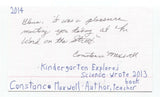 2014
Elena. It was a pleasure
meeting you today at the
Word on the Street.
Constance Maxwell
- Kindergarten Explores
Science wrote 2013
book
Constance Maxwell - Author, Teacher